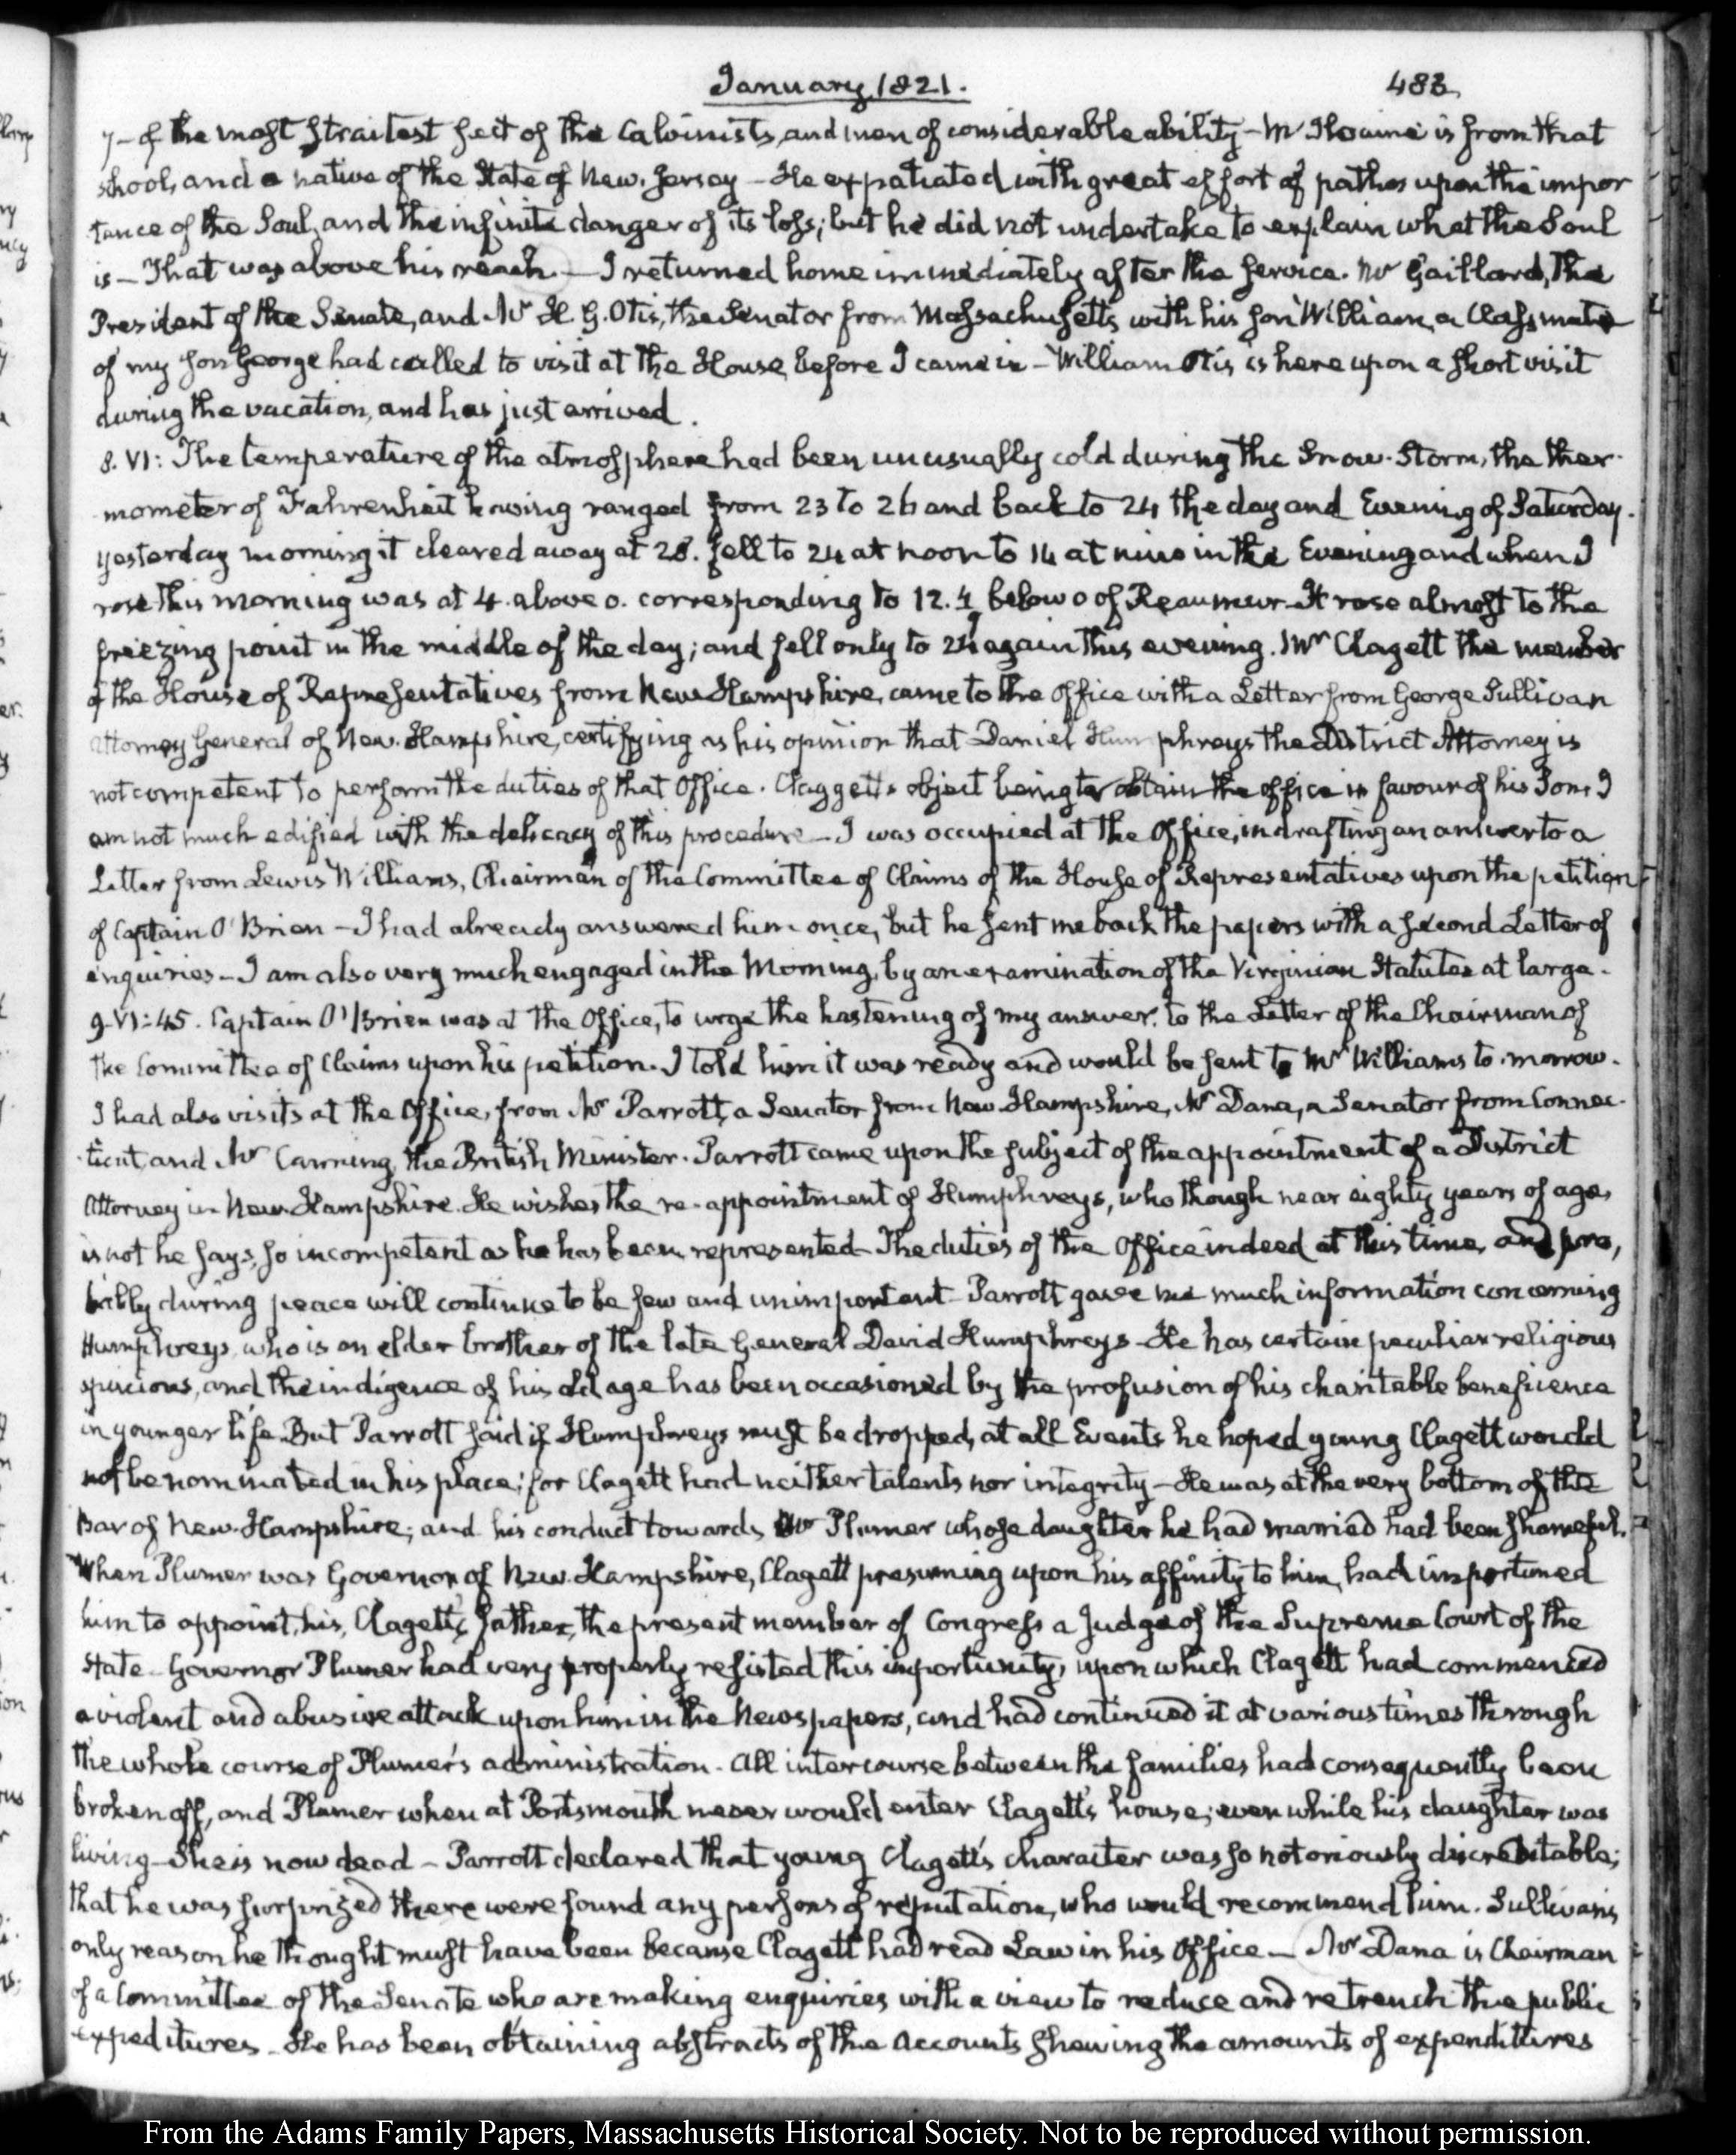 January 1821.
483
7— of the most straitest sect of the Calvinists, and men of considerable ability — Mr McIlvaine is from that
school, and a native of the State of New-Jersey — He expatiated with great effort of pathos upon the impor
tance of the Soul, and the infinite danger of its loss; but he did not undertake to explain what the Soul
is — That was above his reach. — I returned home immediately after the service. Mr Gaillard, the
President of the Senate, and Mr H. G. Otis, the Senator from Massachusetts, with his son William, a Classmate
of my son George had called to visit at the House, before I came in — William Otis is here upon a short visit
during the vacation, and has just arrived.
8. VI: The temperature of the atmosphere had been unusually cold during the Snow-Storm, the ther-
mometer of Fahrenheit having ranged from 23 to 26 and back to 24 the day and Evening of Saturday.
yesterday morning it cleared away at 28. fell to 24 at noon to 14 at nine in the Evening and when I
rose this morning was at 4. above 0. corresponding to 12.4 below 0 of Reaumur. It rose almost to the
freezing point in the middle of the day; and fell only to 24 again this evening. Mr Clagett the member
of the House of Representatives from New-Hampshire, came to the Office with a Letter from George Sullivan
Attorney General of New-Hampshire, certifying as his opinion that Daniel Humphreys the District Attorney is
not competent to perform the duties of that Office. Claggett's object being to obtain the office in favour of his Son. I
am not much edified with the delicacy of this procedure — I was occupied at the Office, in drafting an answer to a
Letter from Lewis Williams, Chairman of the Committee of Claims of the House of Representatives upon the petition
of Captain O'Brien — I had already answered him once, but he sent me back the papers with a second Letter of
enquiries — I am also very much engaged in the Morning, by an examination of the Virginian Statutes at large.
9. VI:45. Captain O'Brien was at the Office, to urge the hastening of my answer, to the Letter of the Chairman of
the Committee of Claims upon his petition. I told him it was ready and would be sent to Mr Williams to-morrow.
I had also visits at the Office, from Mr Parrott, a Senator from New-Hampshire, Mr Dana, a Senator from Connec-
ticut, and Mr Canning, the British Minister. Parrott came upon the subject of the appointment of a District
Attorney in New-Hampshire. He wishes the re-appointment of Humphreys, who though near eighty years of age,
is not he says, so incompetent as he has been represented — The duties of the Office indeed at this time, and pro,
bably during peace will continue to be few and unimportant — Parrott gave me much information concerning
Humphreys, who is an elder brother of the late General David Humphreys — He has certain peculiar religious
opinions, and the indigence of his old age has been occasioned by the profusion of his charitable beneficence
in younger life. But Parrott said if Humphreys must be dropped, at all Events he hoped young Clagett would
not be nominated in his place; for Clagett had neither talents nor integrity — He was at the very bottom of the
Bar of New-Hampshire; and his conduct towards Mr Plumer whose daughter he had married had been shameful.
When Plumer was Governor of New-Hampshire, Clagett presuming upon his affinity to him, had importuned
him to appoint, his, Clagett's father, the present member of Congress a Judge of the Supreme Court of the
State — Governor Plumer had very properly resisted this importunity, upon which Clagett had commenced
a violent and abusive attack upon him in the Newspapers, and had continued it at various times through
the whole course of Plumer's administration. All intercourse between the families had consequently been
broken off, and Plumer when at Portsmouth never would enter Clagett's house; even while his daughter was
living — She is now dead — Parrott declared that young Clagett's character was so notoriously discreditable;
that he was surprized there were found any persons of reputation, who would recommend him. Sullivan's
only reason he thought must have been because Clagett had read Law in his Office — Mr Dana is Chairman
of a Committee of the Senate who are making enquiries with a view to reduce and retrench the public
expeditures. He has been obtaining abstracts of the Accounts shewing the amounts of expenditures
From the Adams Family Papers, Massachusetts Historical Society. Not to be reproduced without permission.